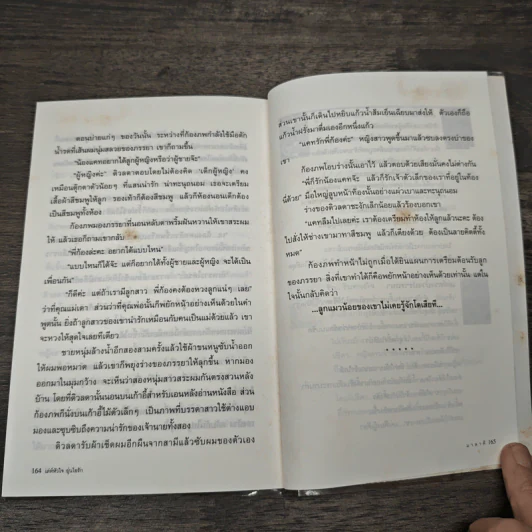 ตอนบ่ายแก่ๆ ของวันนั้น ระหว่างที่ก้องภพกำลังใช้มือตัก
น้ำรดที่เส้นผมนุ่มสลวยของภรรยา เขาก็ถามขึ้น
"น้องแคทอยากได้ลูกผู้หญิงหรือว่าผู้ชายจ๊ะ"
"ผู้หญิงค่ะ" ติวลดาตอบโดยไม่ต้องคิด "เด็กผู้หญิง คง
เหมือนตุ๊กตาตัวน้อยๆ ที่แสนน่ารัก น่าทะนุถนอม เธอจะเตรียม
เสื้อผ้าสีชมพูให้ลูก รองเท้าก็ต้องสีชมพู แล้วก็ห้องนอนเด็กต้อง
เป็นสีชมพูทั้งห้อง
ก้องภพมองภรรยาที่นอนหลับตาพริ้มฝันหวานให้เขาสระผม
ให้ แล้วเธอก็ถามเขากลับ
"พี่ก้องล่ะคะ อยากได้แบบไหน"
"แบบไหนก็ได้จ้ะ แต่ก็อยากได้ทั้งผู้ชายและผู้หญิง จะได้เป็น
เพื่อนกัน"
"ก็ดีค่ะ แต่ถ้าเรามีลูกสาว พี่ก้องคงต้องหวงลูกแน่ๆ เลย"
ว่าที่คุณแม่เดา ส่วนว่าที่คุณพ่อนั้นก็พยักหน้าอย่างเห็นด้วยในคำ
พูดนั้น ยิ่งถ้าลูกสาวของเขาน่ารักเหมือนกับคนเป็นแม่ด้วยแล้ว เขา
จะหวงให้สุดใจเลยทีเดียว
ชายหนุ่มล้างน้ำอีกสองสามครั้งแล้วใช้ผ้าขนหนูซับน้ำออก
ให้ผมพอหมาด แล้วเขาก็พยุงร่างของภรรยาให้ลุกขึ้น หากมอง
ออกมาในมุมกว้าง จะเห็นว่าสองหนุ่มสาวสระผมกันตรงสวนหลัง
บ้าน โดยที่ติวลดานั้นนอนบนเก้าอี้สำหรับเอนหลังอ่านหนังสือ ส่วน
ก้องภพก็นั่งบนเก้าอี้ไม้ตัวเล็กๆ เป็นภาพที่บรรดาสาวใช้ต่างแอบ
มองและซุบซิบถึงความน่ารักของเจ้านายทั้งสอง
ติวลดารับผ้าเช็ดผมอีกผืนจากสามีแล้วซับผมของตัวเอง
164
ส่วนเขานั้นก็เดินไปหยิบแก้วน้ำส้มเย็นเฉียบมาส่งให้ ตัวเองก็ถือ
แก้วน้ำฝรั่งมาดื่มเองอีกหนึ่งแก้ว
"แคทรักพี่ก้องค่ะ" หญิงสาวพูดขึ้นมาแล้วซบลงตรงบ่าของ
เขา
ก้องภพโอบร่างนั้นเอาไว้ แล้วตอบด้วยเสียงมั่นคงไม่ต่างกัน
"พี่ก็รักน้องแคทจ้ะ แล้วก็รักเจ้าตัวเล็กของเราที่อยู่ในท้อง
นี่ด้วย" มือใหญ่ลูบหน้าท้องนั้นอย่างแผ่วเบาและทะนุถนอม
ร่างของติวลดาชะงักเล็กน้อยแล้วร้องบอกเขา
"แคทลืมไปเลยค่ะ เราต้องเตรียมทำห้องให้ลูกแล้วนะคะ ต้อง
ไปสั่งให้ช่างเขามาทาสีชมพู แล้วก็เตียงด้วย ต้องเป็นลายคิตตี้ทั้ง
หมด"
ก้องภพทำหน้าไม่ถูกเมื่อได้ยินแผนการเตรียมต้อนรับลูก
ของภรรยา สิ่งที่เขาทำได้ก็คือพยักหน้าอย่างเห็นด้วยเท่านั้น แต่ใน
ใจนั้นกลับคิดว่า
...ลูกแมวน้อยของเขาไม่เคยรู้จักโตเสียที...
• • • • •
165